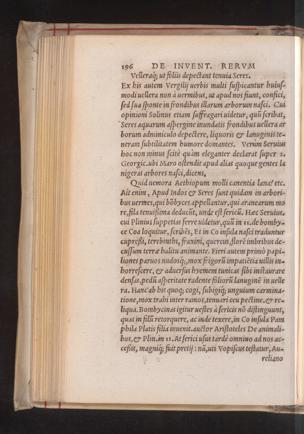 196 DE INVENT. RERVM
Velleraq́; ut foliis depectant tenuia Seres.
Ex his autem Vergilij uerbis multi suspicantur huius-
modi uellera non à uermibus, ut apud nos fiunt, confici,
sed sua sponte in frondibus illarum arborum nasci. Cui
opinioni Solinus etiam suffragari uidetur, quòd scribat,
Seres aquarum aspergine inundatis frondibus uellera ar
borum adminiculo depectere, liquoris & lanuginis te-
neram subtilitatem humore domantes. Verùm Seruius
hoc non minus scitè quàm eleganter declarat super 2.
Georgic. ubi Maro ostendit apud alias quoque gentes la
nigeras arbores nasci, dicens,
Quid nemora Aethiopum molli canentia lana? etc.
Ait enim, Apud Indos & Seres sunt quidam in arbori-
bus uermes, qui bombyces appellantur, qui aranearum mo
re, fila tenuissima deducunt, unde est sericũ. Haec Seruius,
cui Plinius suppetias ferre uidetur, quũ in 11. de bomby-
ce Coa loquitur, scribẽs, Et in Co insula nasci traduntur
cupressi, terebinthi, fraxini, quercus, florẽ imbribus de-
cussum terrae halitu animante. Fieri autem primò papi-
liones paruos nudosq́;, mox frigorũ impatiẽtia uillis in-
horrescere, & aduersus hyemem tunicas sibi instaurare
densas, pedũ asperitate radente foliorũ lanuginẽ in uelle
ra. Hanc ab his quoq; cogi, subigiq́; unguium carmina-
tione, mox trahi inter ramos, tenuari ceu pectine, & re-
liqua. Bombycinas igitur uestes à sericis nõ distinguunt,
quas in filũ retorquere, ac inde texere, in Co insula Pam
phila Platis filia inuenit. auctor Aristoteles De animali-
bus, & Plin. in 11. At serici usus tardè omnino ad nos ac-
cessit, magniq́; fuit pretij: nã, uti Vopiscus testatur, Au-
reliano